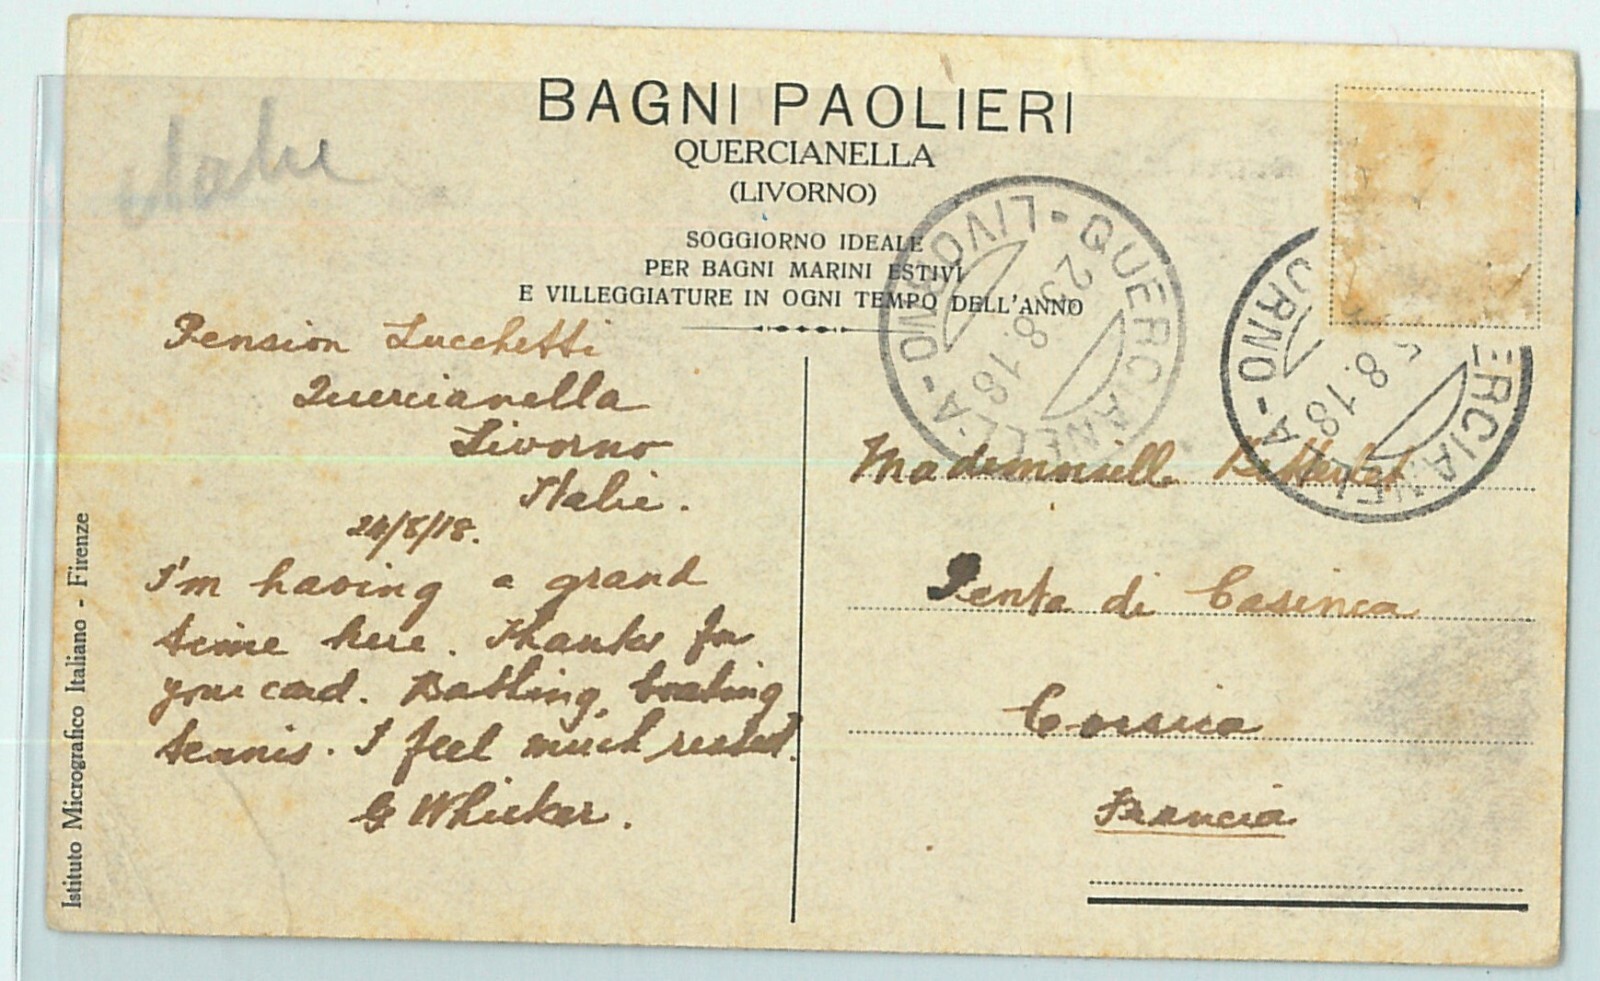 Italie
BAGNI PAOLIERI
QUERCIANELLA
(LIVORNO)
SOGGIORNO IDEALE
PER BAGNI MARINI ESTIVI
E VILLEGGIATURE IN OGNI TEMPO DELL'ANNO
QUERCIANELLA - LIVORNO -
25.8.18
ERCIANELLA - ORNO
5.8.18
Pension Lucchetti
Quercianella
Livorno
Italie.
24/8/18.
I'm having a grand
time here. Thanks for
your card. Bathing, boating
tennis. I feel much rested.
G Whicker.
Mademoiselle
Penta di Casinca
Corsica
Francia
Istituto Micrografico Italiano - Firenze